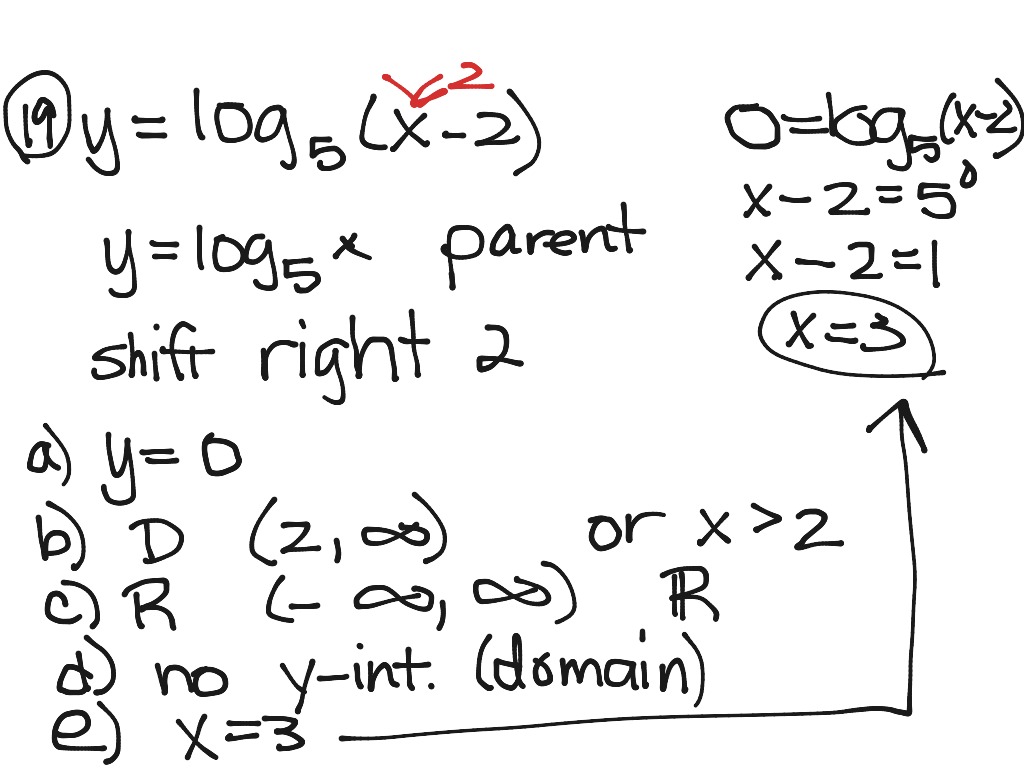 19 y = log₅(x-2)
2
y = log₅x parent
shift right 2
a) y = 0
b) D (2, ∞) or x > 2
c) R (-∞, ∞) ℝ
d) no y-int. (domain)
e) x = 3
0 = log₅(x-2)
x - 2 = 5⁰
x - 2 = 1
x = 3